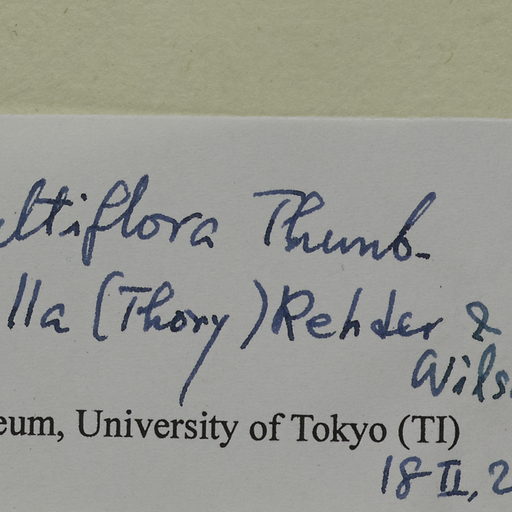 ltiflora Thunb.
lla (Thory) Rehder &
Wils
eum, University of Tokyo (TI)
18 II, 2